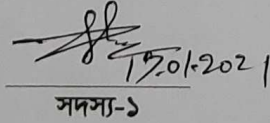 15.01.2021
সদস্য-১